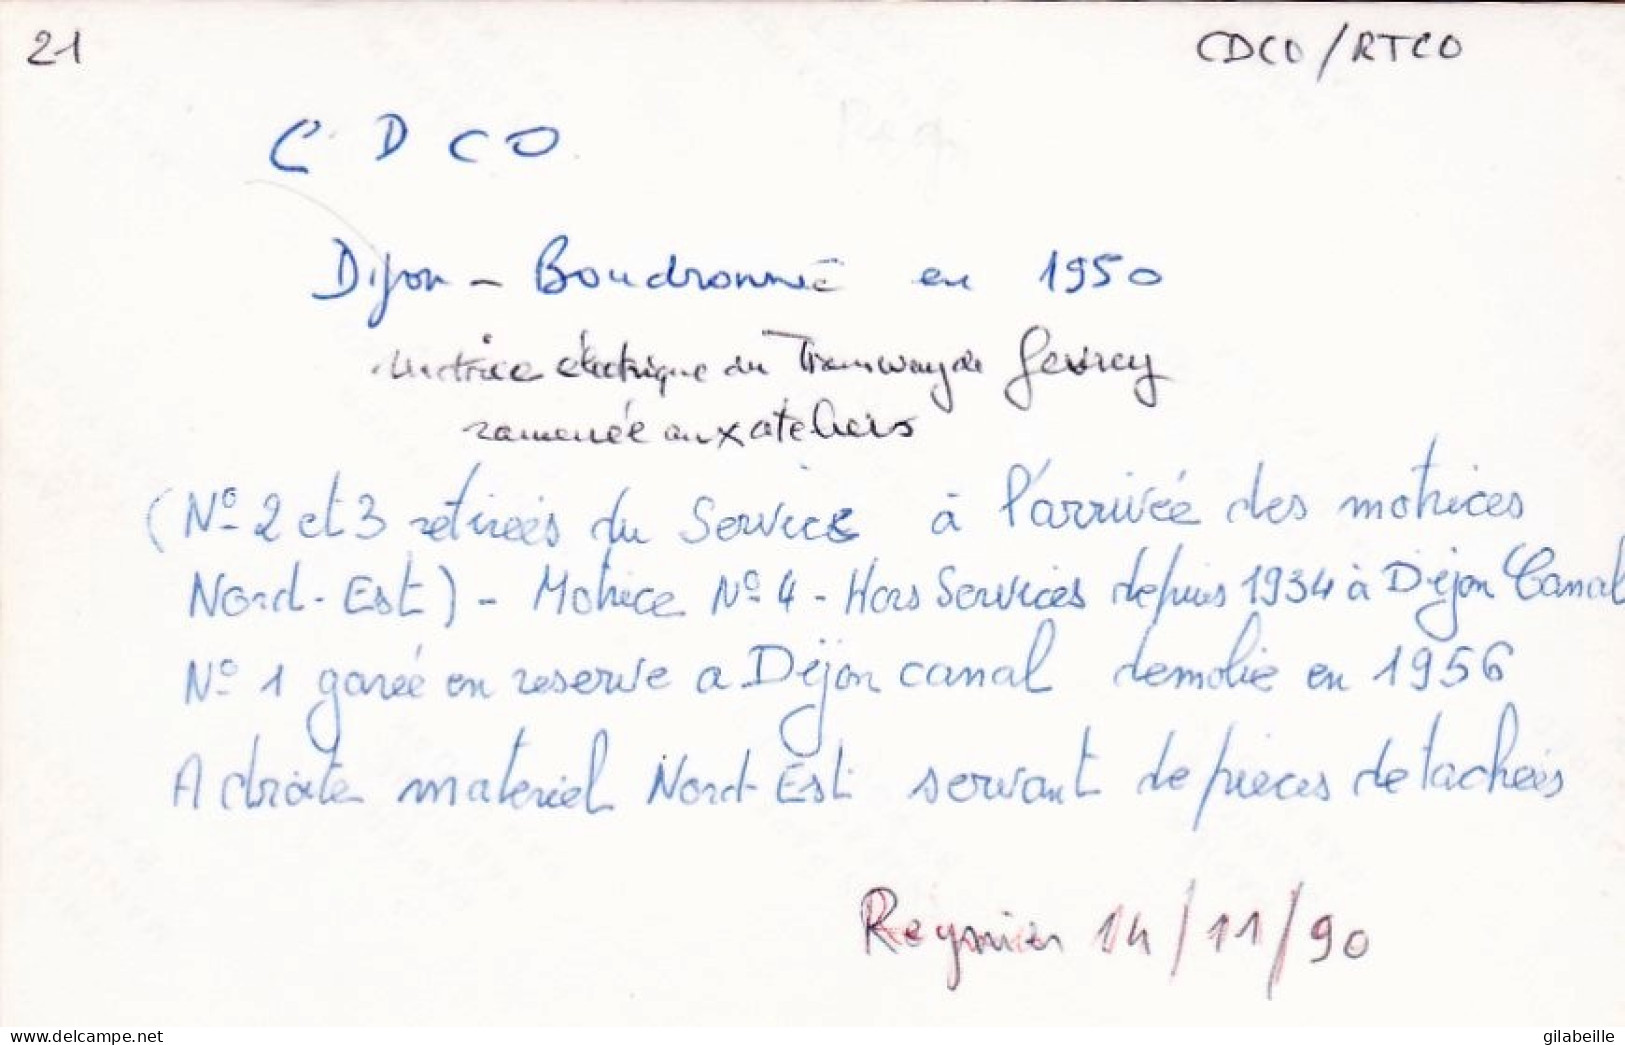 21
CDCO/RTCO
C D C O
Dijon - Boudronnée en 1950
Motrice électrique du Tramway de Gevrey
ramenée aux ateliers
(Nº 2 et 3 retireés du Service à l'arrivée des motrices
Nord-Est) - Motrice Nº 4 - Hors Services depuis 1934 à Dijon Canal
Nº 1 garée en reserve a Dijon canal demolie en 1956
A droite materiel Nord Est servant de pieces detacheés
Reynier 14/11/90
www.delcampe.net
gilabeille